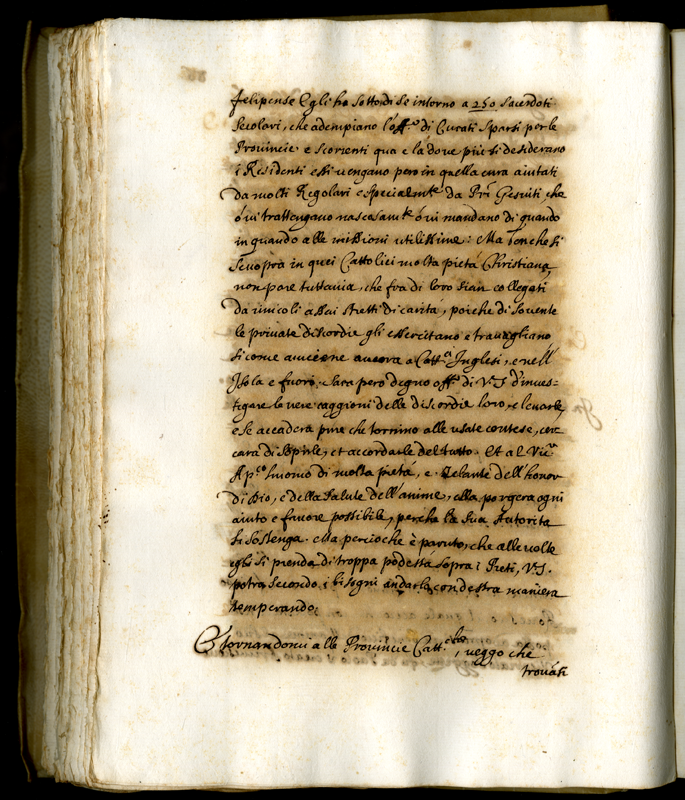 felipense Egli ha sotto di se intorno a 250 sacerdoti
secolari, che adempiano l'off.º di Curati sparsi per le
Provincie e scorrenti qua e là dove piu si desiderano
i Residenti essi vengano pero in quella cura aiutati
da molti Regolari e specialmte da Pri Gesuiti, che
ó vi trattengano nascosamte ó vi mandano di quando
in quando alle missioni utilissime: Ma benche si
scuopra in quei Cattolici molta pietá Christiana,
non pare tuttavia, che fra di loro sian collegati
da vincoli assai stretti di carità, poiche di sovente
le private discordie gli essercitano e travagliano,
si come avviene ancora a Catt.i Inglesi, e nell'
Isola e fuori, sara pero degno off.º di V.S. d'inves-
tigare le vere caggioni delle discordie loro, e levarle,
e se accaderà pure che tornino alle usate contese, cer
cara di sopirle, et accordarle del tutto. Et al Vic.º
Ap.co huomo di molta pietá, e zelante dell'honor
di Dio, e della salute dell'anime, ella porgerà ogni
aiuto e favore possibile, perche la sua Autorità
si sostenga. Ma percioche è paruto, che alle volte
egli si prenda di troppa podestá sopra i Preti, V.S.
potrà secondo i bisogni andarla con destra maniera
temperando.
E tornandomi alle Provincie Catt.che, veggo che
trovati